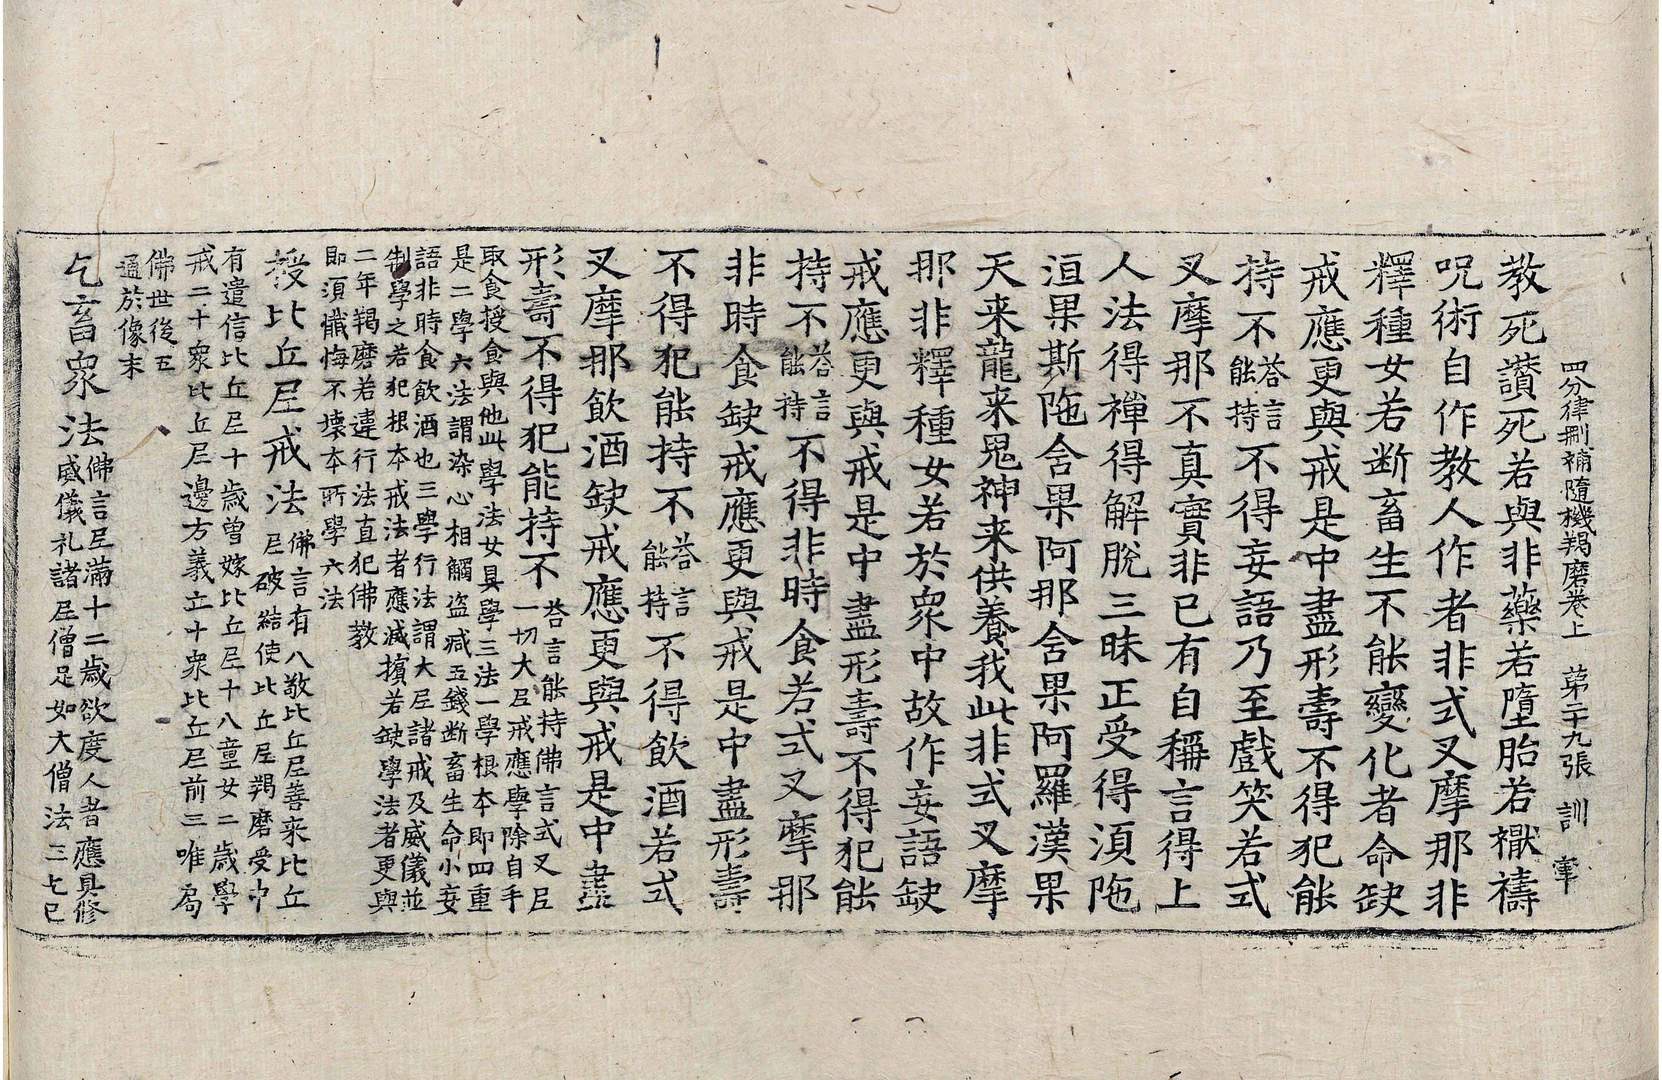 四分律刪補隨機羯磨卷上 苐二十九張 訓
教死讃死若與非藥若墮胎若禱
呪術自作教人作者非式叉摩那非
釋種女若断畜生不能變化者命缺
戒應更與戒是中盡形壽不得犯能
持不荅言能持不得妄語乃至戲笑若式
叉摩那不真實非已有自稱言得上
人法得禪得解脫三昧正受得湏陁
洹果斯陁含果阿那含果阿羅漢果
天来龍来鬼神来供養我此非式叉摩
那非釋種女若於衆中故作妄語缺
戒應更與戒是中盡形壽不得犯能
持不荅言能持不得非時食若式叉摩那
非時食缺戒應更與戒是中盡形壽
不得犯能持不荅言能持不得飲酒若式
叉摩那飲酒缺戒應更與戒是中盡
形壽不得犯能持不
荅言能持佛言式叉尼
一切大尼戒應學除自手
取食授食與他此學法女具學三法一學根本即四重
是二學六法謂染心相觸盗減五錢断畜生命小妄
語非時食飲酒也三學行法謂大尼諸戒及威儀並
制學之若犯根本戒法者應滅擯若缺學法者更與
二年羯磨若違行法直犯佛教
即湏懺悔不壞本所學六法
授比丘尼戒法
佛言有八敬比丘尼善来比丘
尼破結使比丘尼羯磨受中
有遣信比丘尼十歳曾嫁比丘尼十八童女二歳學
戒二十衆比丘尼邊方義立十衆比丘尼前三唯局
佛世後五
通於像末
乞畜衆法
佛言尼滿十二歳欲度人者應具修
威儀礼諸尼僧足如大僧法三乞已